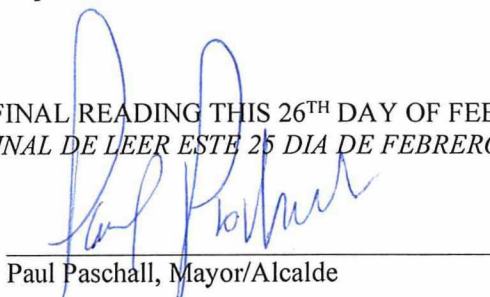 FINAL READING THIS 26TH DAY OF FEB
INAL DE LEER ESTE 25 DIA DE FEBRERO
Paul Paschall, Mayor/Alcalde